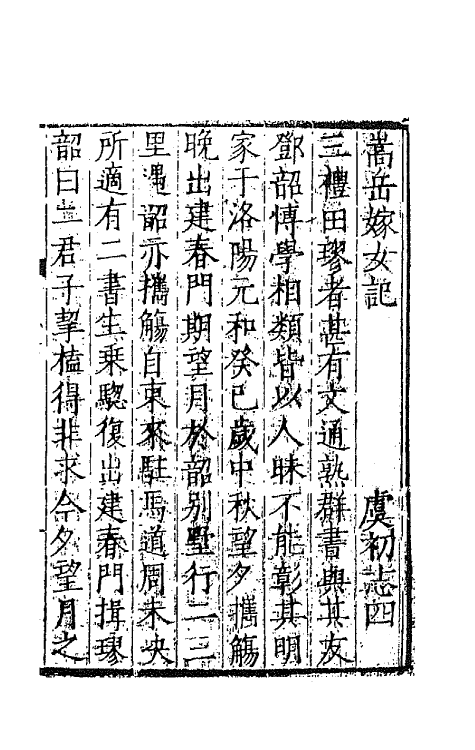 嵩岳嫁女記　虞初志四
三禮田璆者甚有文通熟群書與其友
鄧韶博學相類皆以人昧不能彰其明
家于洛陽元和癸巳歲中秋望夕攜觴
晚出建春門期望月於韶别墅行二三
里遇韶亦攜觴自東來駐馬道周未决
所適有二書生乗驄復出建春門揖璆
韶曰二君子挈榼得非求今夕望月之